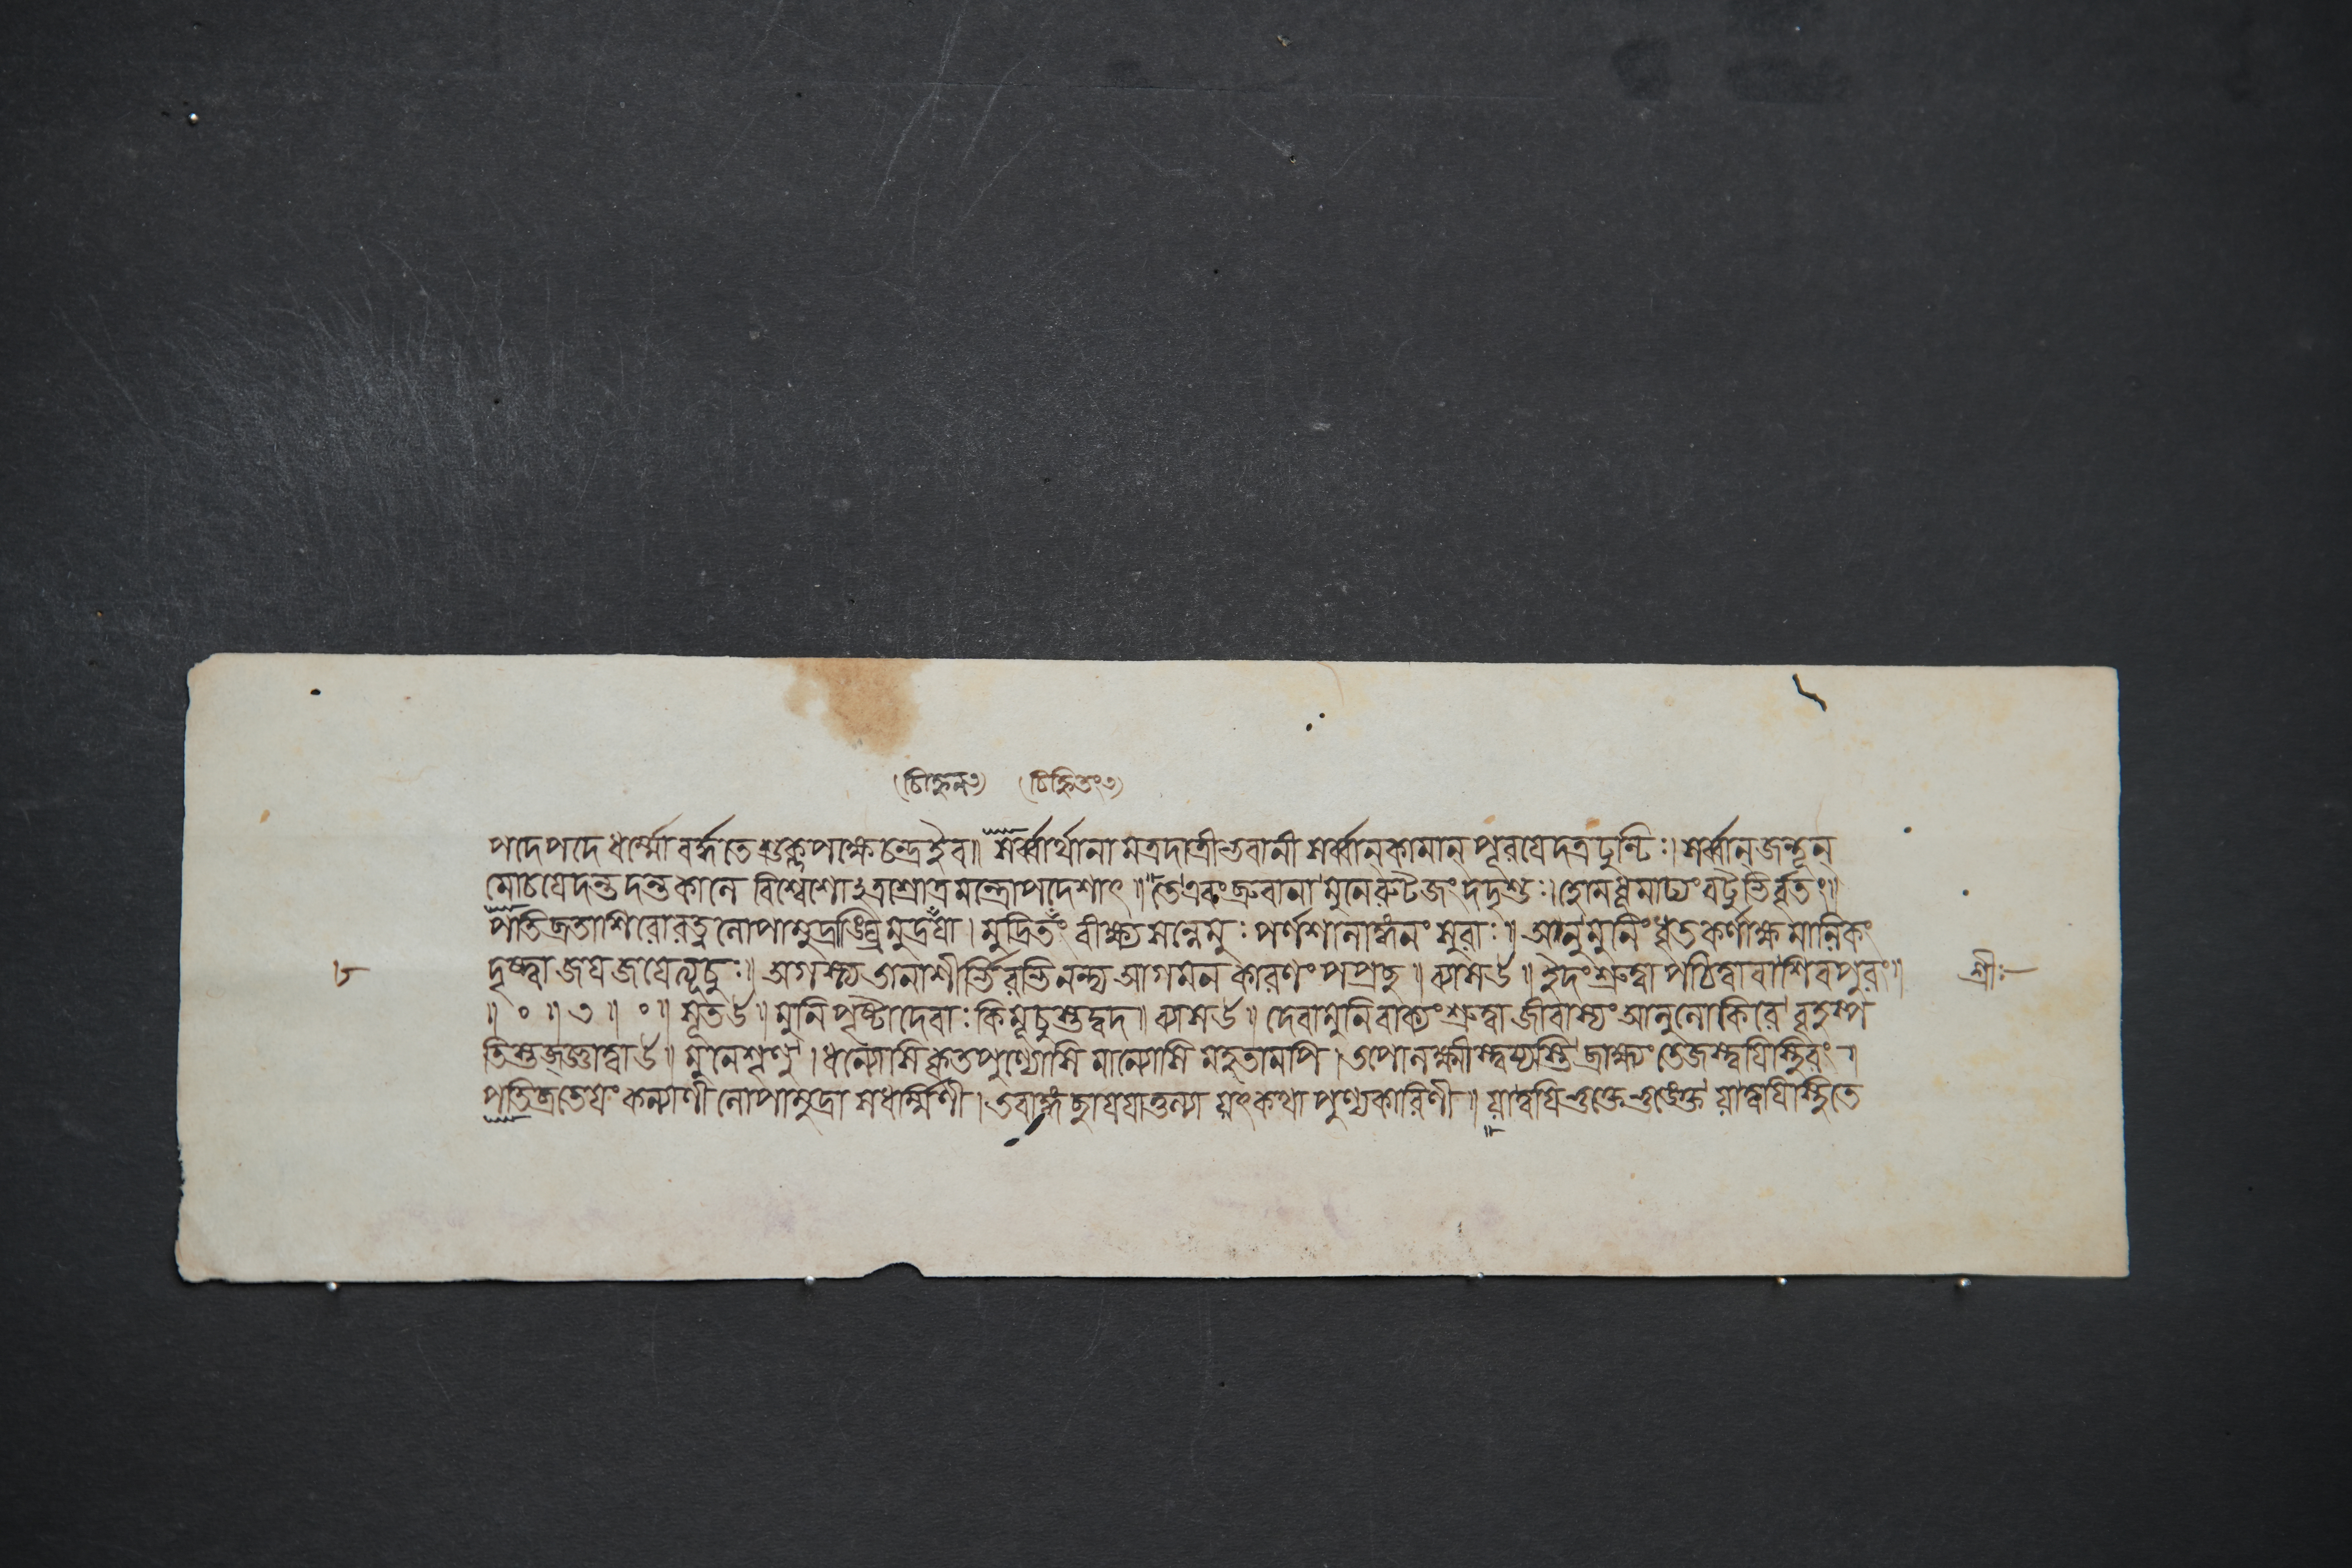 (চিহ্নন৩) (চিহ্নিতং৩)
পদেপদে ধর্ম্মো বর্দ্ধতে শুক্লপক্ষে চন্দ্র ইব॥ সর্ব্বার্থানামত্রদাত্রী ভবানী সর্ব্বান্ কামান্ পূরযেদত্র ঢুণ্টিঃ। সর্ব্বান্ জন্তূন্
মোচযেদন্তকালে বিশ্বেশো শ্রোত্রমন্ত্রোপদেশাৎ॥ তে এবং ব্রুবানা মুনেরুটজং দদৃশুঃ। হোমধূমাঢ্যং বটুভির্বৃতং॥
পতিব্রতাশিরোরত্ন লোপামুদ্রাঙ্ঘ্রিমুদ্রযা। মুদ্রিতং বীক্ষ্য সন্নেমুঃ পর্ণশালাঙ্গনং সুরাঃ॥ মুনিং ধৃতকর্ণাক্ষমালিকং
দৃষ্ট্বা জয জযেত্যূচুঃ॥ অগস্ত্য আগমন কারণং পপ্রচ্ছ॥ ব্যাস উ॥ ইদং শ্রুত্বা পঠিত্বা বা শিবপুরং॥
৮ শ্রীঃ
॥ ০ ॥ ৩ ॥ ০ ॥ সূত উ॥ মুনিপৃষ্টা দেবাঃ কিমূচুস্তদ্বদ॥ ব্যাস উ॥ দেবা মুনিবাক্যং শ্রুত্বা জীবাস্যং আলুলোকিরে বৃহস্প
তিস্তজ্জ্ঞাত্বা উ॥ মুনে শৃণু। ধন্যোসি কৃতপুণ্যোসি মান্যোসি মহতামপি। তপোলক্ষ্মীস্ত্বয্যস্তি ব্রাহ্ম্যং তেজস্ত্বযি স্থিরং॥
পতিব্রতেযং কল্যাণী লোপামুদ্রা সধর্ম্মিণী। তবাঙ্গচ্ছাযযাতুল্যা যৎকথা পুণ্যকারিণী॥ ভুক্তে ভুঙ্ক্তে